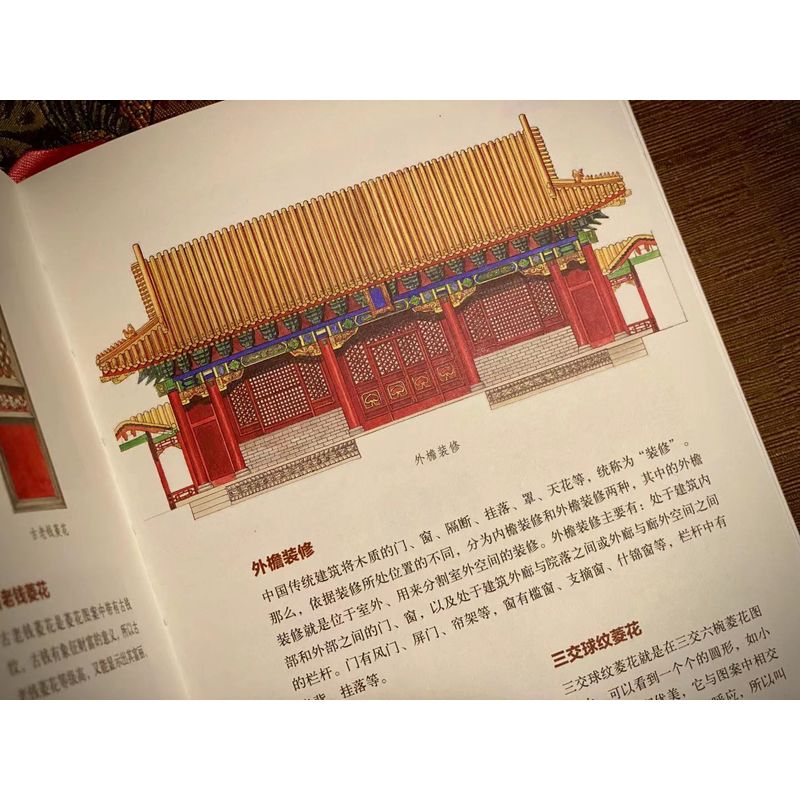 古老钱菱花
老钱菱花
古老钱菱花是菱花图案中带有古钱
纹。古钱有象征财富的意义，所以古
老钱菱花等级高，又能显示出其富丽。
外檐装修
外檐装修
中国传统建筑将木质的门、窗、隔断、挂落、罩、天花等，统称为“装修”。
那么，依据装修所处位置的不同，分为内檐装修和外檐装修两种，其中的外檐
装修就是位于室外、用来分割室外空间的装修。外檐装修主要有：处于建筑内
部和外部之间的门、窗，以及处于建筑外廊与院落之间或外廊与廊外空间之间
的栏杆。门有风门、屏门、帘架等，窗有槛窗、支摘窗、什锦窗等，栏杆中有
背、挂落等。
三交球纹菱花
三交球纹菱花就是在三交六椀菱花图
可以看到一个个的圆形，如小
优美，它与图案中相交
呼应，所以叫